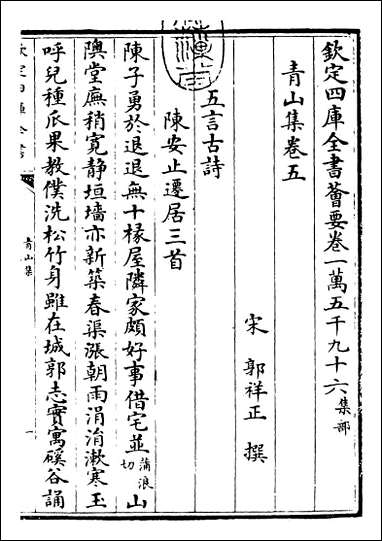 欽定四庫全書薈要卷一萬五千九十六集部
青山集卷五
宋 郭祥正 撰
五言古詩
陳安止遷居三首
陳子勇於退退無十椽屋隣家頗好事借宅並蒲浪切山
隩堂廡稍寛静垣墻亦新築春渠漲朝雨涓涓漱寒玉
呼兒種瓜果教僕洗松竹身雖在城郭志實寓磎谷誦
欽定四庫全書
青山集
一